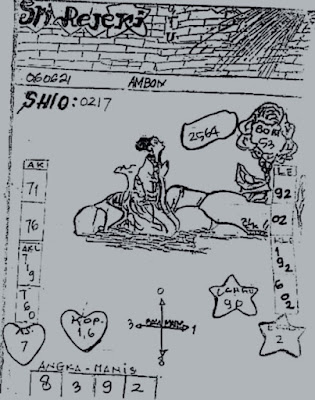 Sri Rejeki
GTU
060621 AMBON
SHIO: 0217
2564
BOM
53
AK
71
76
AKL
7
1
9
7
6
0
LE
92
02
KLE
1
9
2
6
02
AS
7
KOP.
1,6
0
3
1
8
90
2
ANGKA-MANIS
8 3 9 2